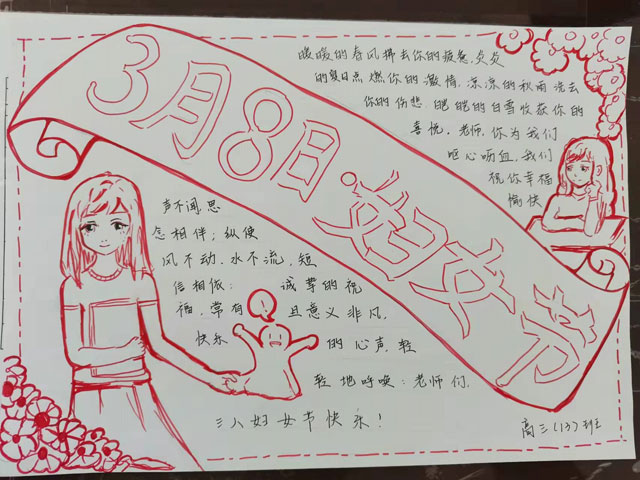 3月8日·妇女节
暖暖的春风拂去你的疲惫,炎炎
的夏日点燃你的激情,凉凉的秋雨洗去
你的伤悲,皑皑的白雪收获你的
喜悦,老师,你为我们
呕心呖血,我们
祝你幸福
愉快
声不闻,思
念相伴;纵使
风不动,水不流,短
信相依:诚挚的祝
福,常有且意义非凡,
快乐的心声,轻
轻地呼唤:老师们,
三八妇女节快乐!
高三(13)班